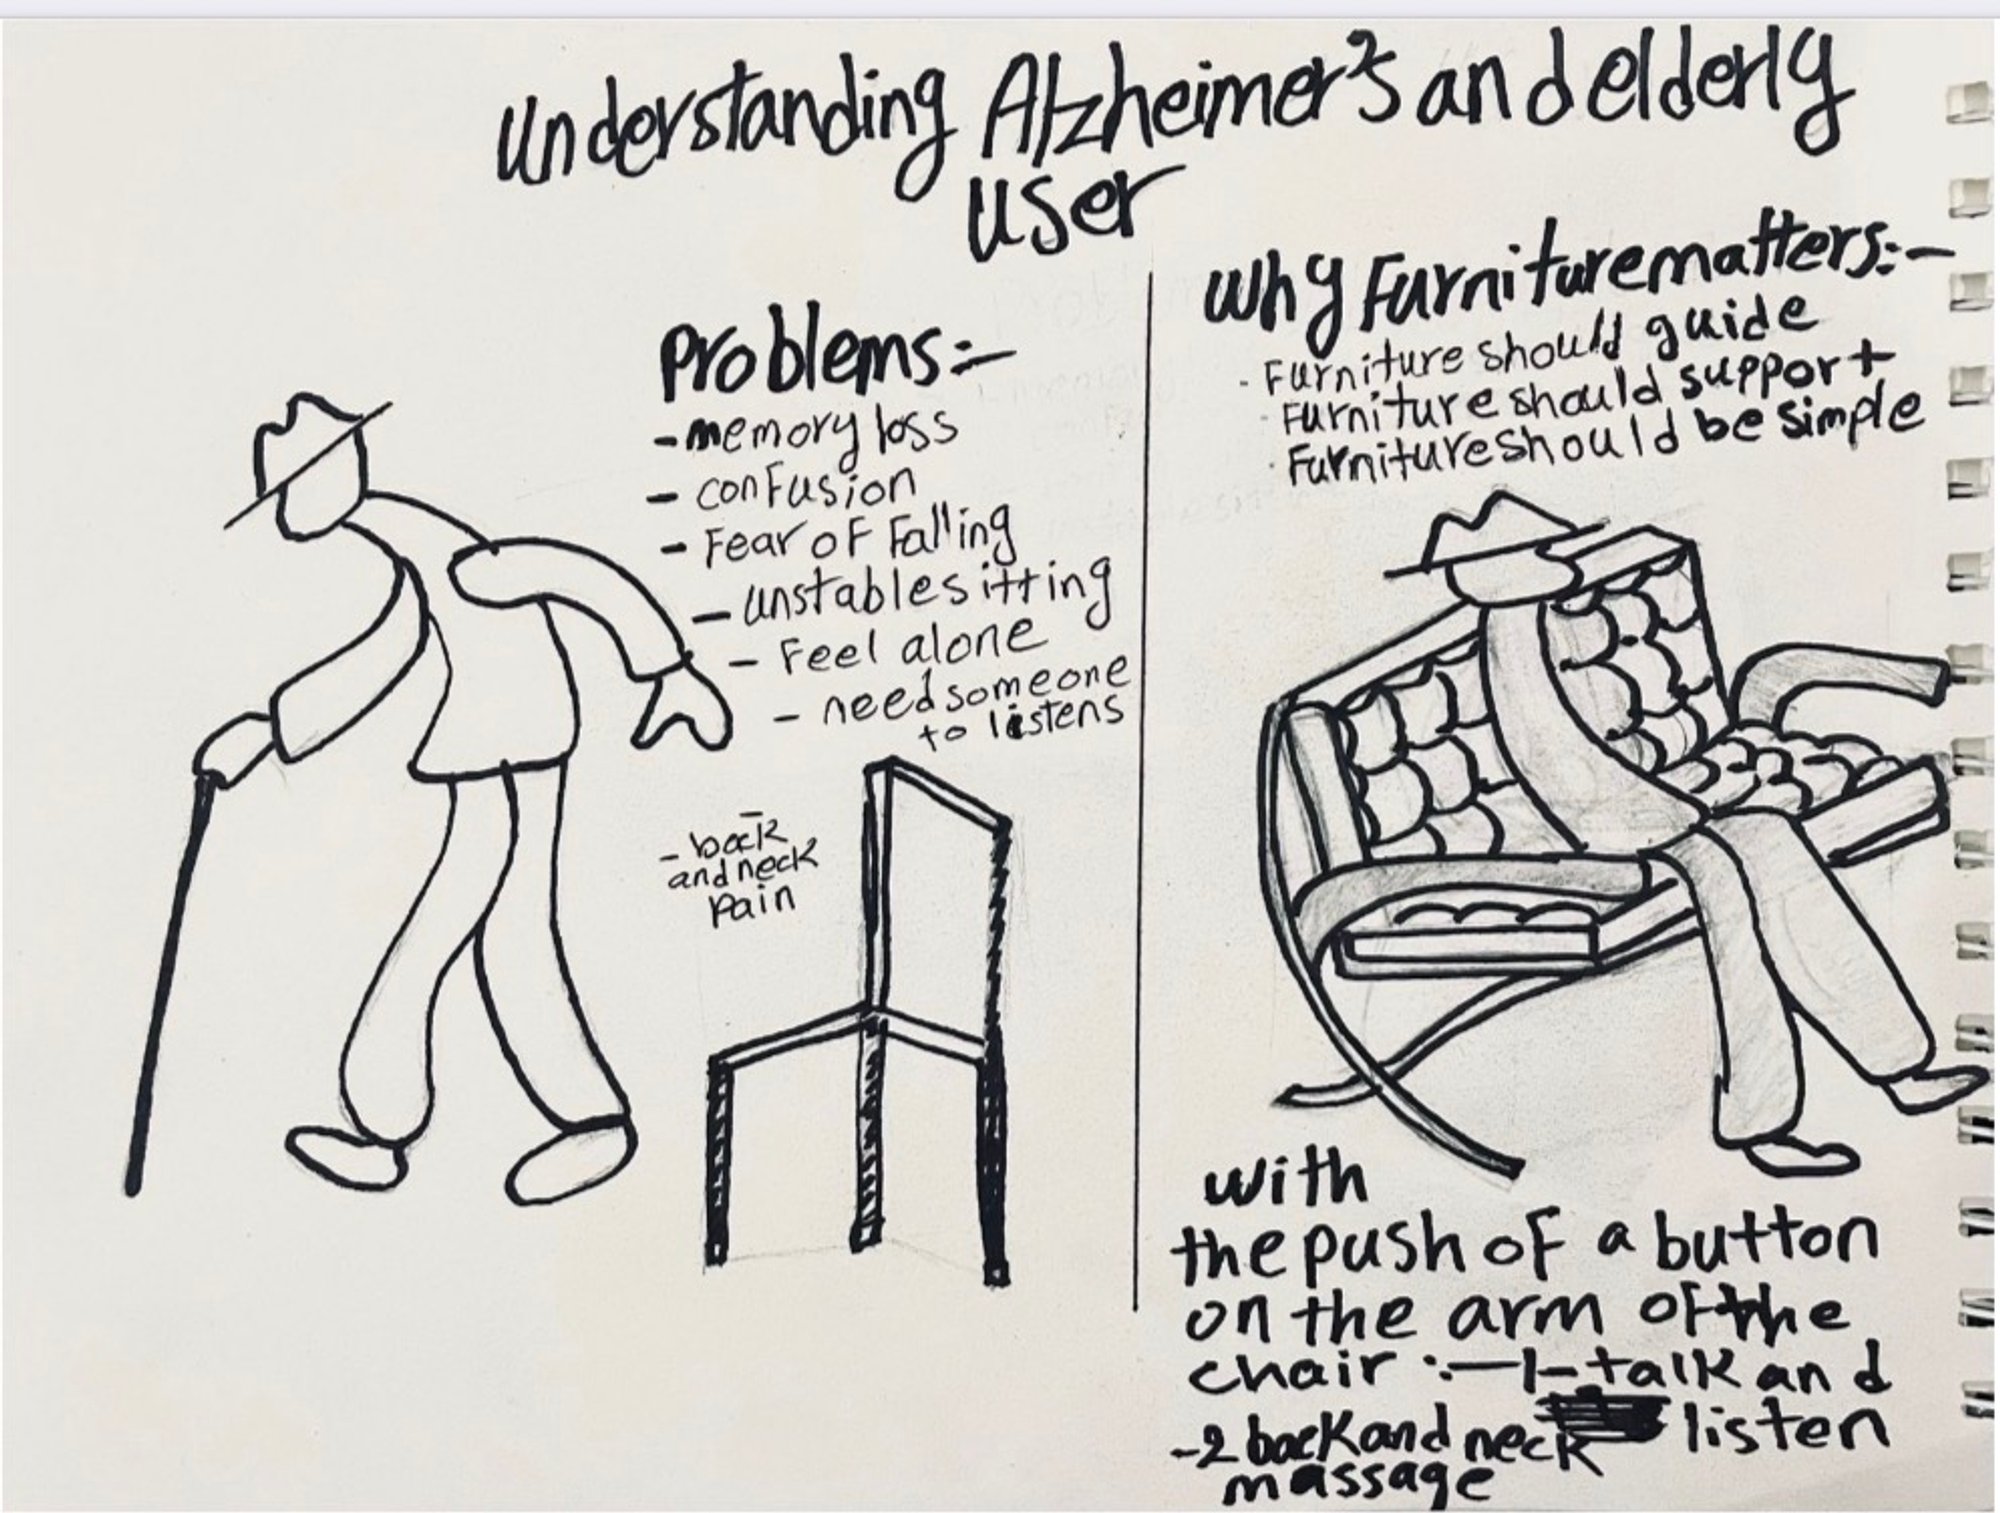 understanding Alzheimer's and elderly
user
Problems:-
- memory loss
- confusion
- Fear of Falling
- unstable sitting
- Feel alone
- need someone
to listens
- back
and neck
pain
why Furniture matters:-
· Furniture should guide
· Furniture should support
· Furniture should be simple
with
the push of a button
on the arm of the
chair :- 1- talk and
listen
-2 back and neck
massage